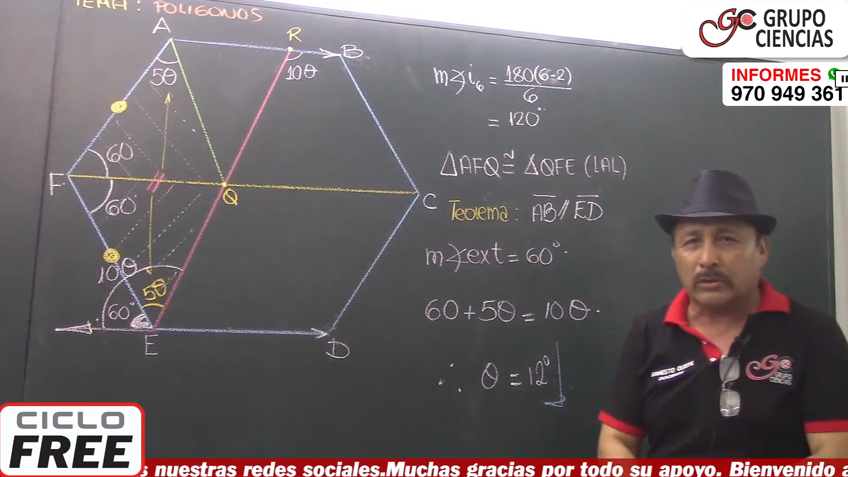 TEMA: POLIGONOS
A
R
B
5θ
10θ
60
F
60
Q
C
10θ
5θ
60°
E
D
m∢i₆ = 180(6-2)
6
= 120°
△AFQ ≅ △QFE (LAL)
Teorema: AB // ED
m∢ext = 60°
60 + 5θ = 10θ
∴ θ = 12°
GC GRUPO
CIENCIAS
INFORMES
970 949 361
ERNESTO QUISPE
DOCENTE
GC
CICLO
FREE
s nuestras redes sociales.Muchas gracias por todo su apoyo. Bienvenido a